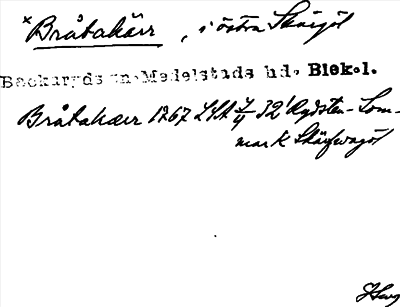 x Bråtakärr, i östra Skärgöl
Backaryds sn. Medelstads hd. Blek.l.
Bråtakärr 1267 LSA 7/4 32 Rydsten - Som-
mark Skärfvagöl